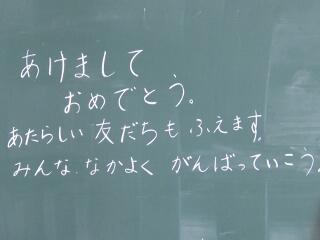 あけまして
おめでとう。
あたらしい友だちもふえます。
みんな、なかよく がんばっていこう。